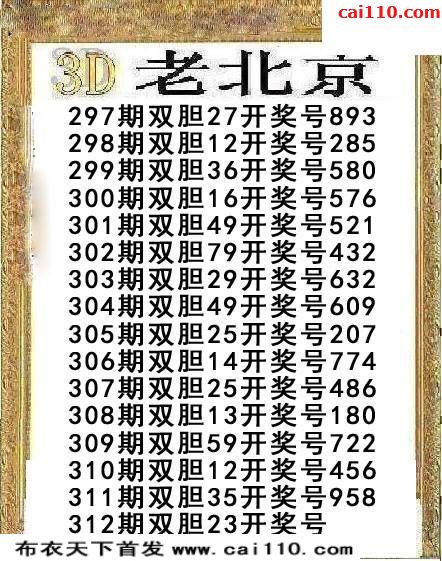 cai110.com
3D 老北京
297期双胆27开奖号893
298期双胆12开奖号285
299期双胆36开奖号580
300期双胆16开奖号576
301期双胆49开奖号521
302期双胆79开奖号432
303期双胆29开奖号632
304期双胆49开奖号609
305期双胆25开奖号207
306期双胆14开奖号774
307期双胆25开奖号486
308期双胆13开奖号180
309期双胆59开奖号722
310期双胆12开奖号456
311期双胆35开奖号958
312期双胆23开奖号
布衣天下首发 www.cai110.com